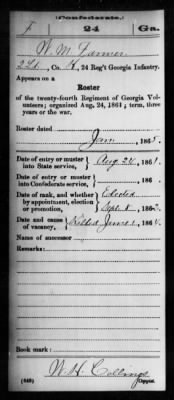 (Confederate.)
24 Ga.
W. M.
2 Lt., Co. K, 24 Reg't Georgia Infantry.
Appears on a
Roster
of the twenty-fourth Regiment of Georgia Vol-
unteers; organized Aug. 24, 1861; term, three
years or the war.
Roster dated
Jan, 1865.
Date of entry or muster
into State service, Aug 24, 1861.
Date of entry or muster
into Confederate service, , 186 .
Date of rank, and whether
by appointment, election
or promotion, Elected
Sept 8, 1862.
Date and cause
of vacancy, Killed June 1, 1864.
Name of successor
Remarks:
Book mark:
W. H. Collings
(649) Copyist.